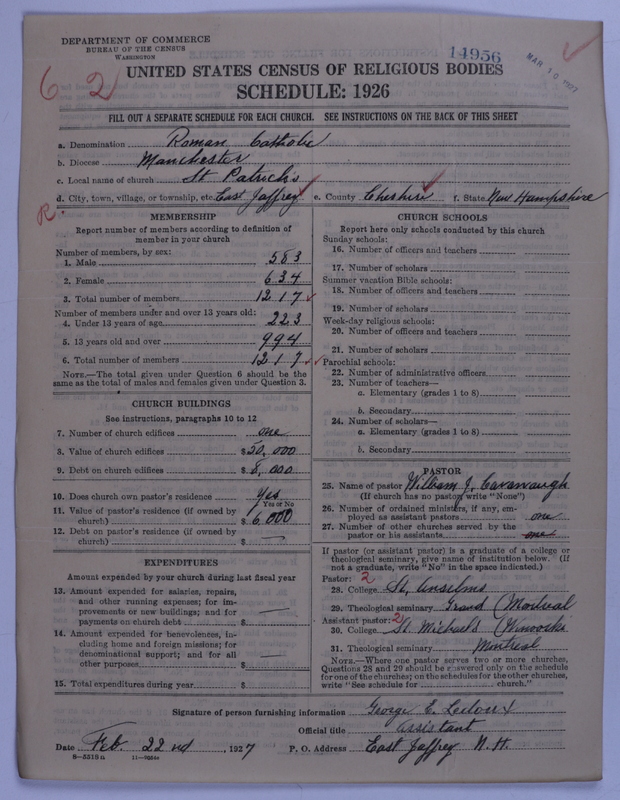 DEPARTMENT OF COMMERCE
BUREAU OF THE CENSUS
WASHINGTON
14956
MAR 10 1927
6 2
UNITED STATES CENSUS OF RELIGIOUS BODIES
SCHEDULE: 1926
FILL OUT A SEPARATE SCHEDULE FOR EACH CHURCH. SEE INSTRUCTIONS ON THE BACK OF THIS SHEET
a. Denomination Roman Catholic
b. Diocese Manchester
c. Local name of church St Patrick's
d. City, town, village, or township, etc. East Jaffrey e. County Cheshire f. State New Hampshire
R.
MEMBERSHIP
Report number of members according to definition of
member in your church
Number of members, by sex:
1. Male 583
2. Female 634
3. Total number of members 1217
Number of members under and over 13 years old:
4. Under 13 years of age 223
5. 13 years old and over 994
6. Total number of members 1217
NOTE.—The total given under Question 6 should be the
same as the total of males and females given under Question 3.
CHURCH BUILDINGS
See instructions, paragraphs 10 to 12
7. Number of church edifices one
8. Value of church edifices $50,000
9. Debt on church edifices $8,000
10. Does church own pastor's residence Yes
Yes or No
11. Value of pastor's residence (if owned by
church) $6,000
12. Debt on pastor's residence (if owned by
church) $ —
EXPENDITURES
Amount expended by your church during last fiscal year
13. Amount expended for salaries, repairs,
and other running expenses; for im-
provements or new buildings; and for
payments on church debt $ —
14. Amount expended for benevolences, in-
cluding home and foreign missions; for
denominational support; and for all
other purposes $ —
15. Total expenditures during year $ —
CHURCH SCHOOLS
Report here only schools conducted by this church
Sunday schools:
16. Number of officers and teachers
17. Number of scholars
Summer vacation Bible schools:
18. Number of officers and teachers
19. Number of scholars
Week-day religious schools:
20. Number of officers and teachers
21. Number of scholars
Parochial schools:
22. Number of administrative officers
23. Number of teachers—
a. Elementary (grades 1 to 8)
b. Secondary
24. Number of scholars—
a. Elementary (grades 1 to 8)
b. Secondary
PASTOR
25. Name of pastor William J. Cavanaugh
(If church has no pastor, write "None")
26. Number of ordained ministers, if any, em-
ployed as assistant pastors one
27. Number of other churches served by the
pastor or his assistants one
If pastor (or assistant pastor) is a graduate of a college or
theological seminary, give name of institution below. (If
not a graduate, write "No" in the space indicated.)
Pastor: 2
28. College St. Anselms
29. Theological seminary Grand (Montreal
Assistant pastor: 2
30. College St. Michaels (Winooski
31. Theological seminary Montreal
NOTE.—Where one pastor serves two or more churches,
Questions 28 and 29 should be answered only on the schedule
for one of the churches; on the schedules for the other churches,
write "See schedule for church."
Signature of person furnishing information George E.
Official title Assistant
Date Feb. 22nd, 1927 P. O. Address East Jaffrey N. H.
8—5519a 11—9554a